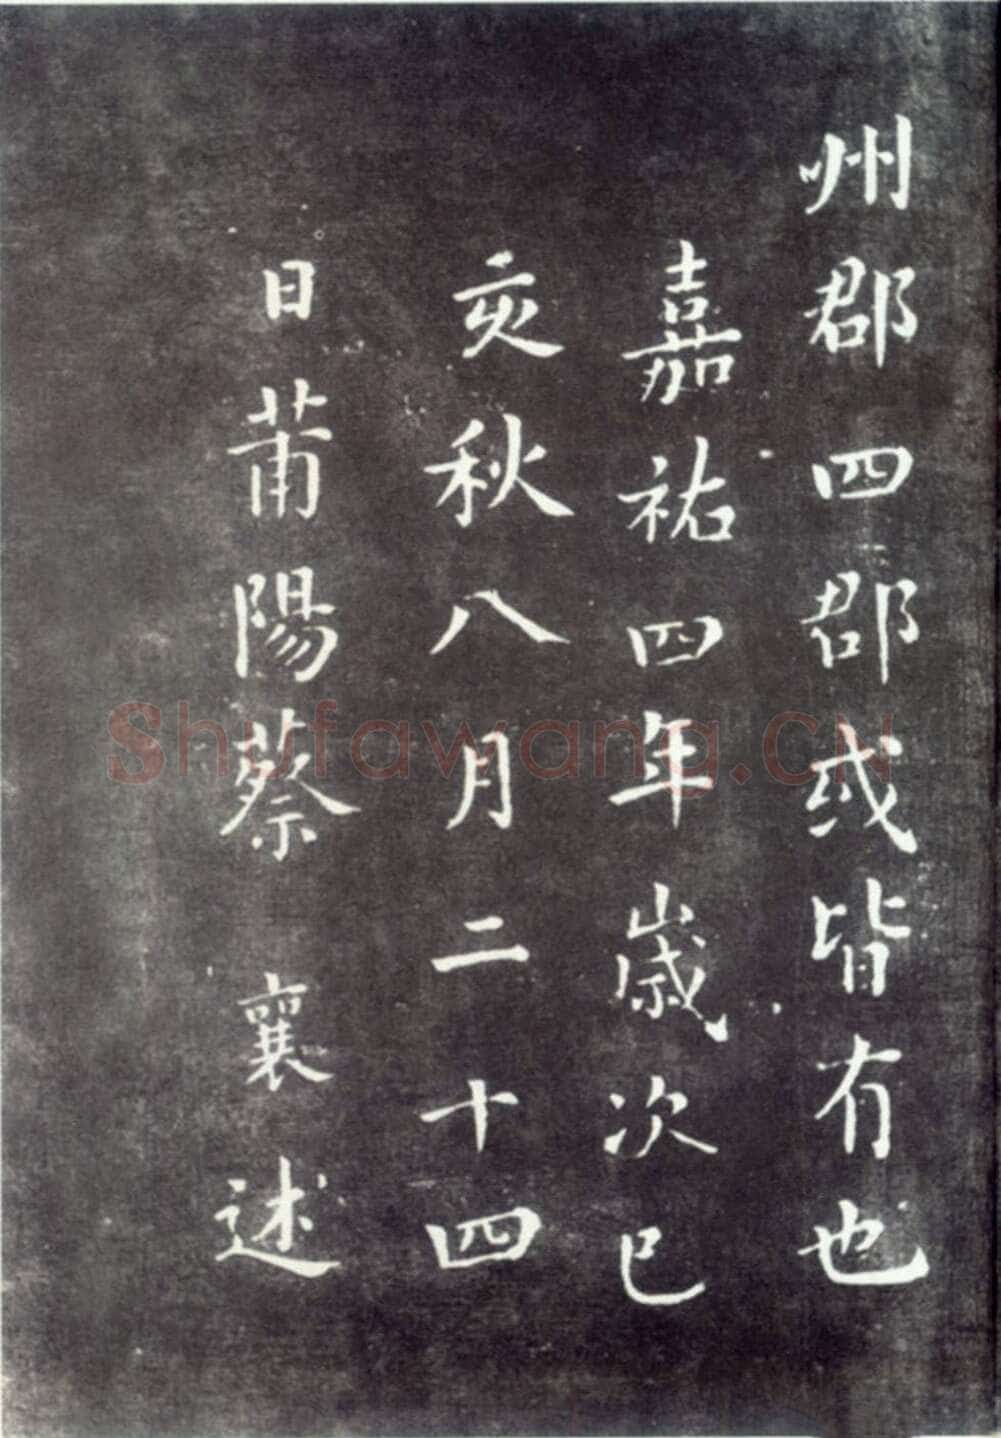 州郡四郡或皆有也
嘉祐四年歲次己
亥秋八月二十四
日莆陽蔡襄述
Shufawang.CN